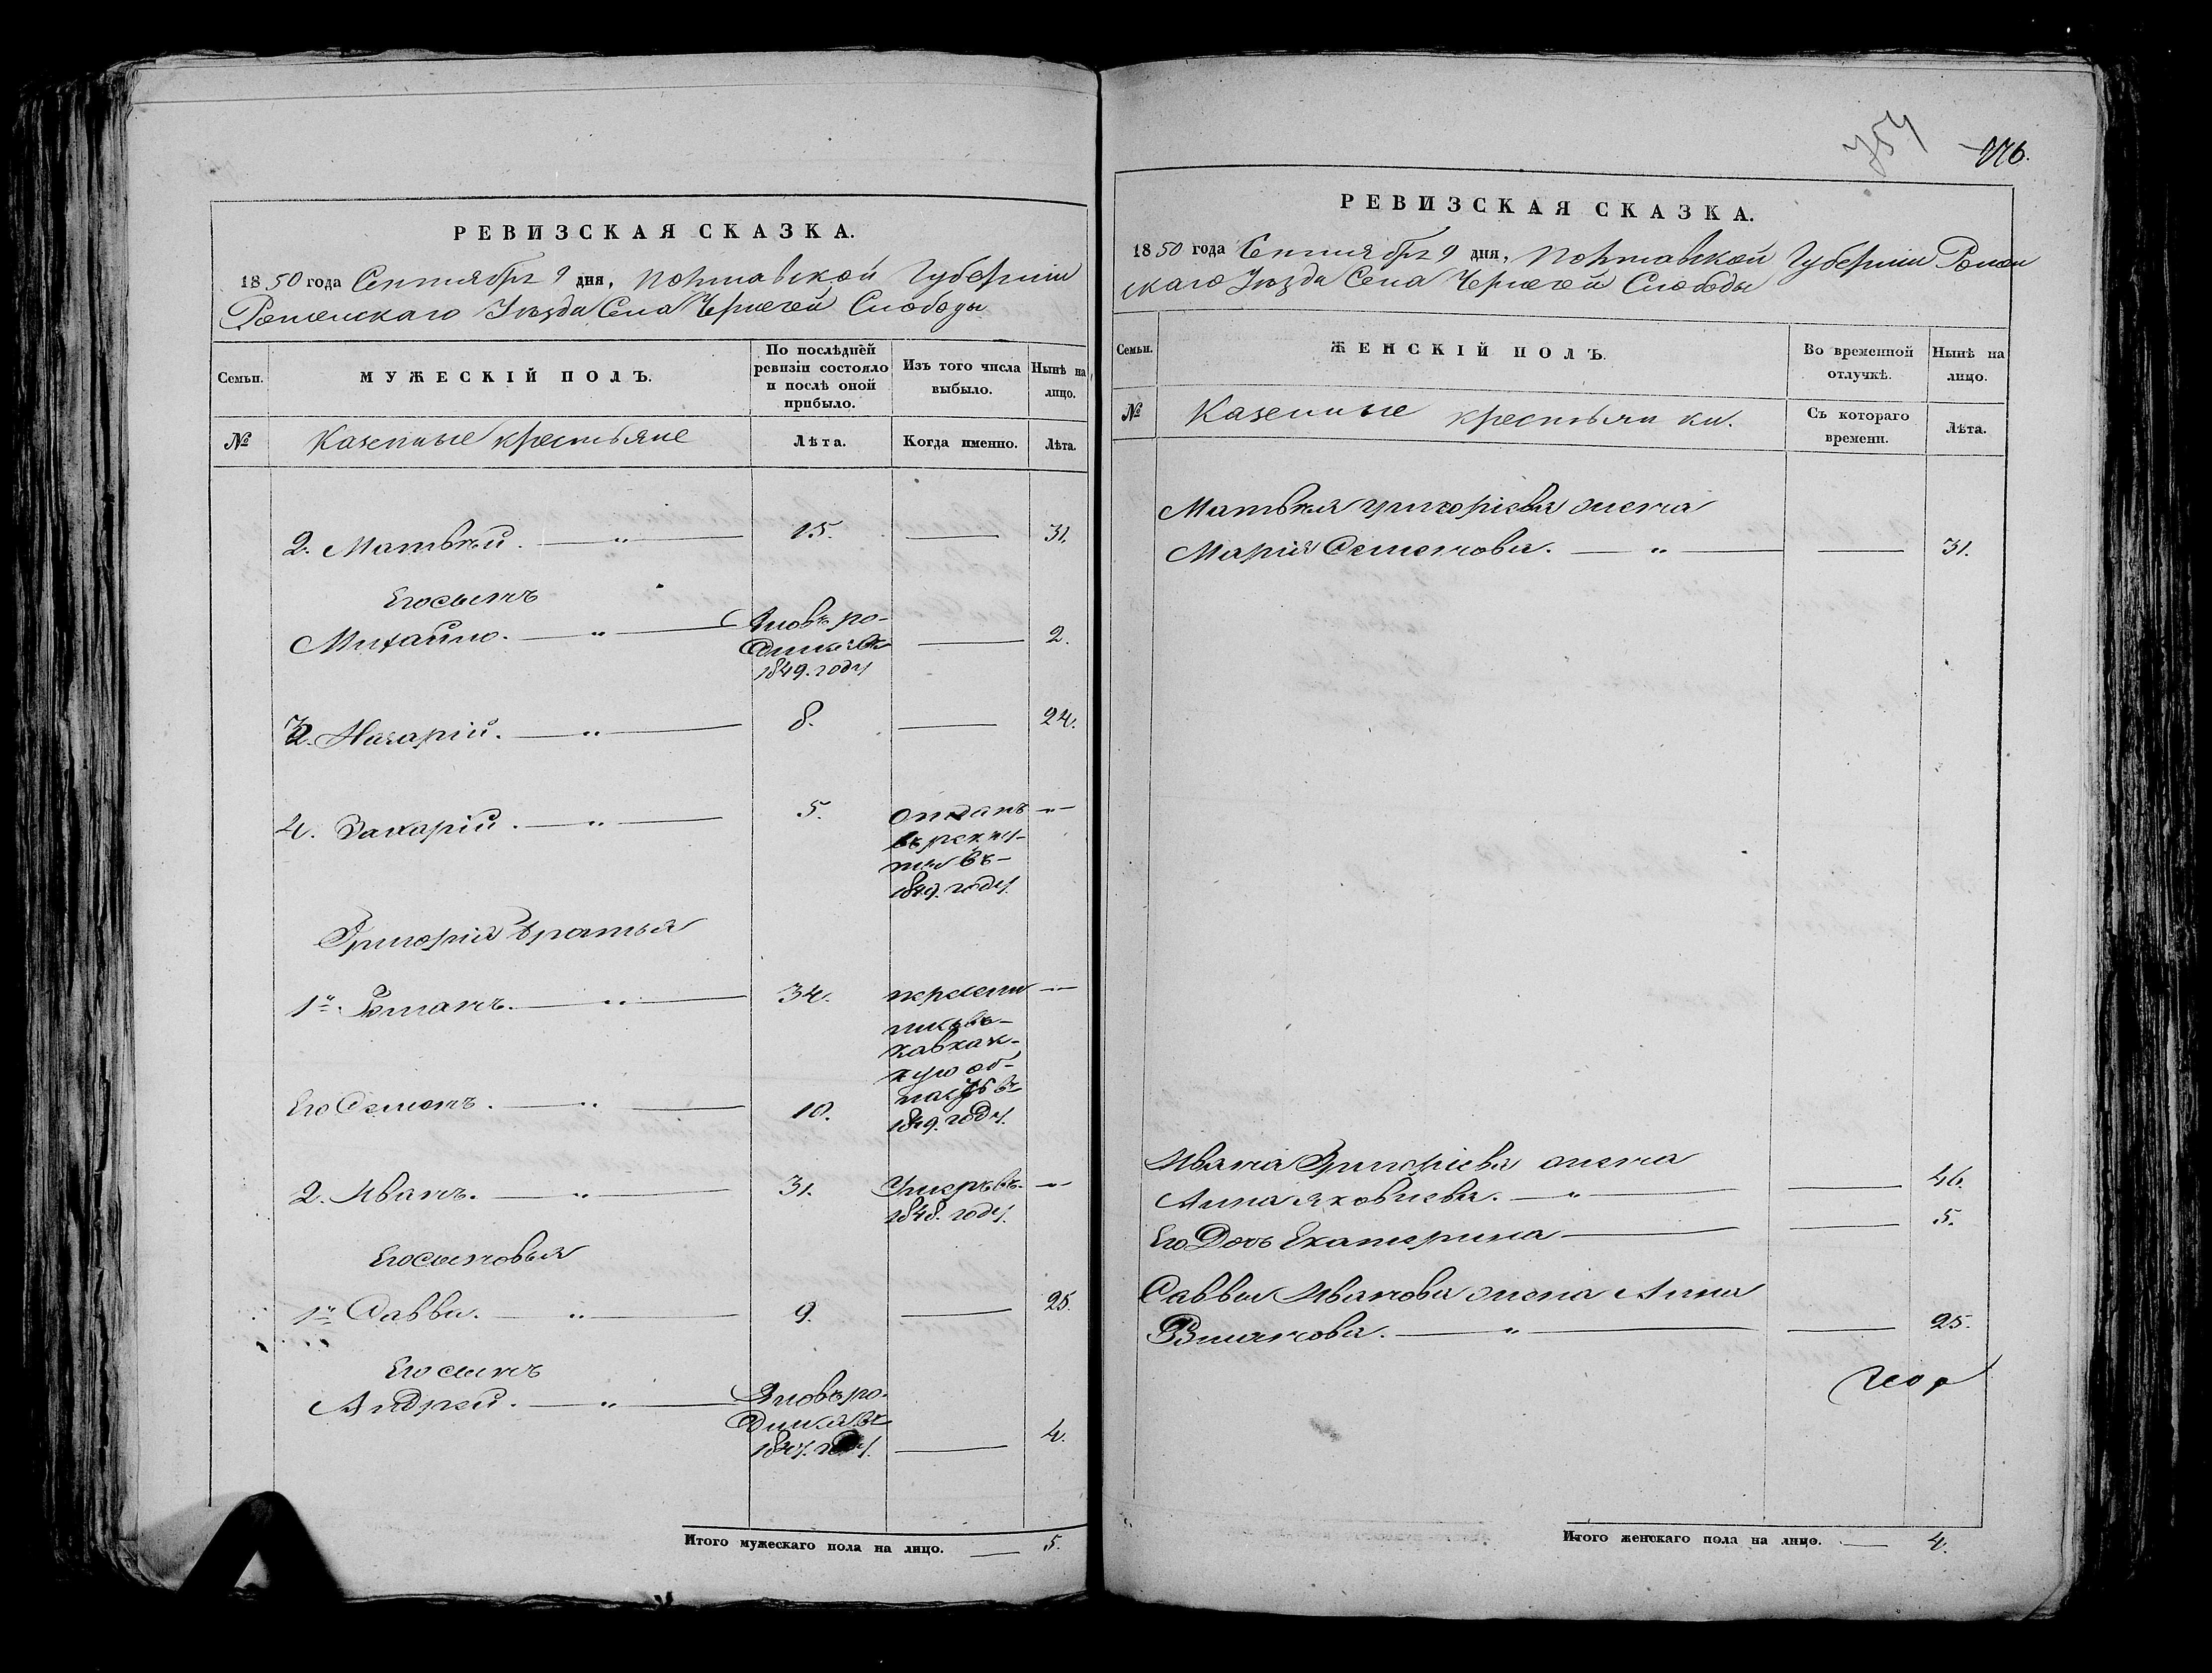 РЕВИЗСКАЯ СКАЗКА.
1850 года Сентября 9 дня, Полтавской Губерніи
Роменскаго Уѣзда Села Чернечей Слободы
Семьи.
МУЖЕСКІЙ ПОЛЪ.
По послѣдней ревизіи состояло и послѣ оной прибыло.
Изъ того числа выбыло.
Нынѣ на лицо.
№
Казенные крестьяне
Лѣта.
Когда именно.
Лѣта.
2. Матвѣй. — „ — 15. — 31.
Его сынъ
Михайло. — „ — Вновь ро-
дился въ — 2.
1849. году
3. Назарій. — „ — 8. — 24.
4. Захарій. — „ — 5. отданъ — „ —
въ рекру-
ты въ-
1849. году
Григорія братья
1й Романъ. — „ — 34. переселился — „ —
въ-
кавказс-
кую об-
ласть въ
Его Семенъ. — „ — 10. 1849. году
2. Иванъ. — „ — 31. Умеръ въ — „ —
1848. году
Его сыновья
1й Савва. — „ — 9. — 25.
Его сынъ
Андрей. — „ — Вновь ро-
дился въ
1847. году — 4.
Итого мужескаго пола на лицо. — 5.
754
РЕВИЗСКАЯ СКАЗКА.
1850 года Сентября 9 дня, Полтавской Губерніи Ромен
скаго Уѣзда Села Чернечей Слободы
Семьи.
ЖЕНСКІЙ ПОЛЪ.
Во временной отлучкѣ.
Нынѣ на лицо.
№
Казенные крестьянки.
Съ котораго времени.
Лѣта.
Матвѣя Григорьева жена
Марія Семенова. — „ — — 31.
Ивана Григорьева жена
Анна Яковлева. — „ — — 46.
Его Дочь Екатерина — — 5.
Саввы Иванова жена Анна
Романова. — „ — — 25.
Итого женскаго пола на лицо. — 4.